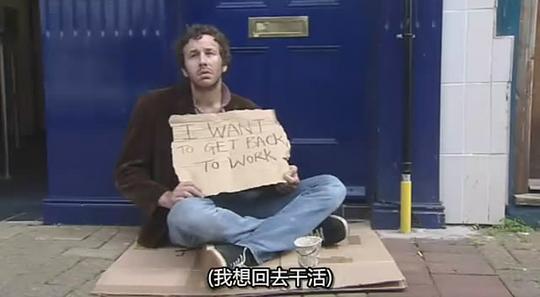 I WANT
TO GET BACK
TO WORK
(我想回去干活)